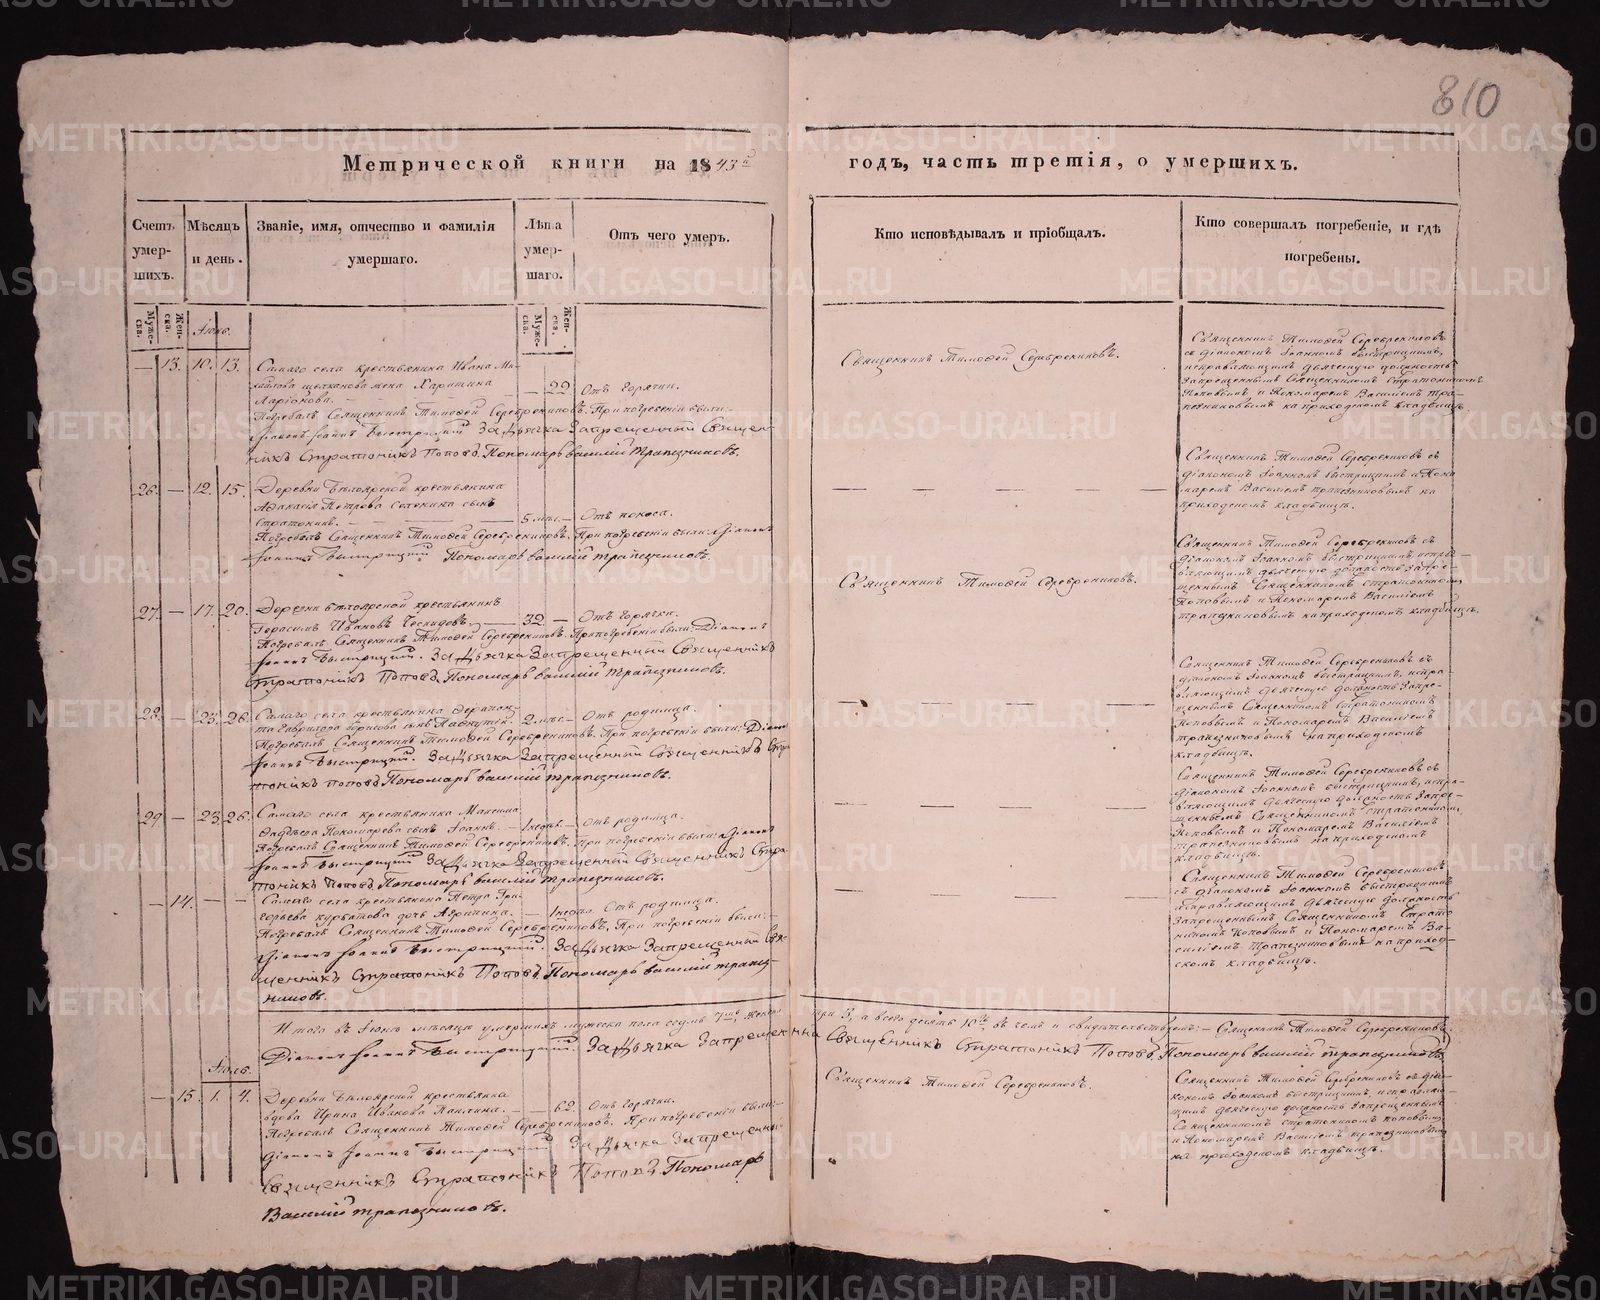 810
Метрической книги на 1843й годъ, часть третія, о умершихъ.
Счетъ умер-шихъ.
Мѣсяцъ и день.
Званіе, имя, отчество и фамилія умершаго.
Лѣта умер-шаго.
Отъ чего умеръ.
Кто исповѣдывалъ и пріобщалъ.
Кто совершалъ погребеніе, и гдѣ погребены.
Муже-ска.
Жен-ска.
Муже-ска.
Жен-ска.
— 13. 10. 13. Самаго села крестьянина Ивана Ми-
хайлова жена Харитина
Ларіонова. — 22 Отъ горячки.
Погребалъ Священникъ Тимофей Серебрениковъ. При погребеніи были:
Діаконъ Іоаннъ Быстрицкій За Дьячка Запрещенный Священ-
никъ Стратоникъ Поповъ. Пономарь Василій Трапезниковъ.
Священникъ Тимофей Серебрениковъ.
Священникъ Тимофей Серебрениковъ
съ діакономъ Іоанномъ Быстрицкимъ,
исправляющимъ дьяческую должность
Запрещеннымъ Священникомъ Стратоникомъ
Поповымъ и Пономаремъ Василіемъ Тра-
пезниковымъ на приходскомъ кладбищѣ.
26. — 12. 15. Деревни Бѣлоярской крестьянина
Афанасія Петрова сынъ
Стратоникъ. — 5 мѣс. — Отъ поноса.
Погребалъ Священникъ Тимофей Серебрениковъ. При погребеніи были: Діаконъ
Іоаннъ Быстрицкій Пономарь Василій Трапезниковъ.
Священникъ Тимофей Серебрениковъ съ
діакономъ Іоанномъ Быстрицкимъ и Поно-
маремъ Василіемъ Трапезниковымъ на
приходскомъ кладбищѣ.
27. — 17. 20. Деревни Бѣлоярской крестьянинъ
Герасимъ Ивановъ — 32 — Отъ горячки.
Погребалъ Священникъ Тимофей Серебрениковъ. При погребеніи были: Діаконъ
Іоаннъ Быстрицкій. За Дьячка Запрещенный Священникъ
Стратоникъ Поповъ. Пономарь Василій Трапезниковъ.
Священникъ Тимофей Серебрениковъ.
Священникъ Тимофей Серебрениковъ съ
діакономъ Іоанномъ Быстрицкимъ, испра-
вляющимъ дьяческую должность Запре-
щеннымъ Священникомъ Стратоникомъ
Поповымъ и Пономаремъ Василіемъ
Трапезниковымъ на приходскомъ кладбищѣ.
28. — 23. 26. Самаго села крестьянина
Гаврилова сынъ 2 мѣс. — Отъ родимца.
Погребалъ Священникъ Тимофей Серебрениковъ. При погребеніи были: Діаконъ
Іоаннъ Быстрицкій. За Дьячка Запрещенный Священникъ Стра-
тоникъ Поповъ Пономарь Василій Трапезниковъ.
Священникъ Тимофей Серебрениковъ съ
діакономъ Іоанномъ Быстрицкимъ, испра-
вляющимъ дьяческую должность Запре-
щеннымъ Священникомъ Стратоникомъ
Поповымъ и Пономаремъ Василіемъ
Трапезниковымъ на приходскомъ
кладбищѣ.
29 — 23. 26. Самаго села крестьянина Максима
Пономарева сынъ Іоаннъ. — Отъ родимца.
Погребалъ Священникъ Тимофей Серебрениковъ. При погребеніи были: Діаконъ
Іоаннъ Быстрицкій За Дьячка Запрещенный Священникъ Стра-
тоникъ Поповъ Пономарь Василій Трапезниковъ.
Священникъ Тимофей Серебрениковъ съ
діакономъ Іоанномъ Быстрицкимъ, испра-
вляющимъ дьяческую должность Запре-
щеннымъ Священникомъ Стратоникомъ
Поповымъ и Пономаремъ Василіемъ
Трапезниковымъ на приходскомъ
кладбищѣ.
— 14. — — Самаго села крестьянина Петра Гри-
горьева Курбатова дочь Агрипина. — Отъ родимца.
Погребалъ Священникъ Тимофей Серебрениковъ. При погребеніи были:
Діаконъ Іоаннъ Быстрицкій. За Дьячка Запрещенный Свя-
щенникъ Стратоникъ Поповъ. Пономарь Василій Трапез-
никовъ.
Священникъ Тимофей Серебрениковъ
съ діакономъ Іоанномъ Быстрицкимъ
исправляющимъ дьяческую должность
Запрещеннымъ Священникомъ Страто-
никомъ Поповымъ и Пономаремъ Ва-
силіемъ Трапезниковымъ на приход-
скомъ кладбищѣ.
Итого въ Іюнѣ мѣсяцѣ умершихъ мужеска пола седмь 7мь, женска три 3, а всего десять 10ть въ чемъ и свидѣтельствуемъ: — Священникъ Тимофей Серебрениковъ
Діаконъ Іоаннъ Быстрицкій. За Дьячка Запрещенный Священникъ Стратоникъ Поповъ. Пономарь Василій Трапезниковъ
Іюль.
— 15. 1. 4. Деревни Бѣлоярской крестьянка
вдова Ирина Иванова — 62. Отъ горячки.
Погребалъ Священникъ Тимофей Серебрениковъ. При погребеніи были:
Діаконъ Іоаннъ Быстрицкій За Дьячка Запрещенный
Священникъ Стратоникъ Поповъ Пономарь
Василій Трапезниковъ.
Священникъ Тимофей Серебрениковъ.
Священникъ Тимофей Серебрениковъ съ діа-
кономъ Іоанномъ Быстрицкимъ, исправляю-
щимъ дьяческую должность Запрещеннымъ
Священникомъ Стратоникомъ Поповымъ
и Пономаремъ Василіемъ Трапезниковымъ
на приходскомъ кладбищѣ.
METRIKI.GASO-URAL.RU